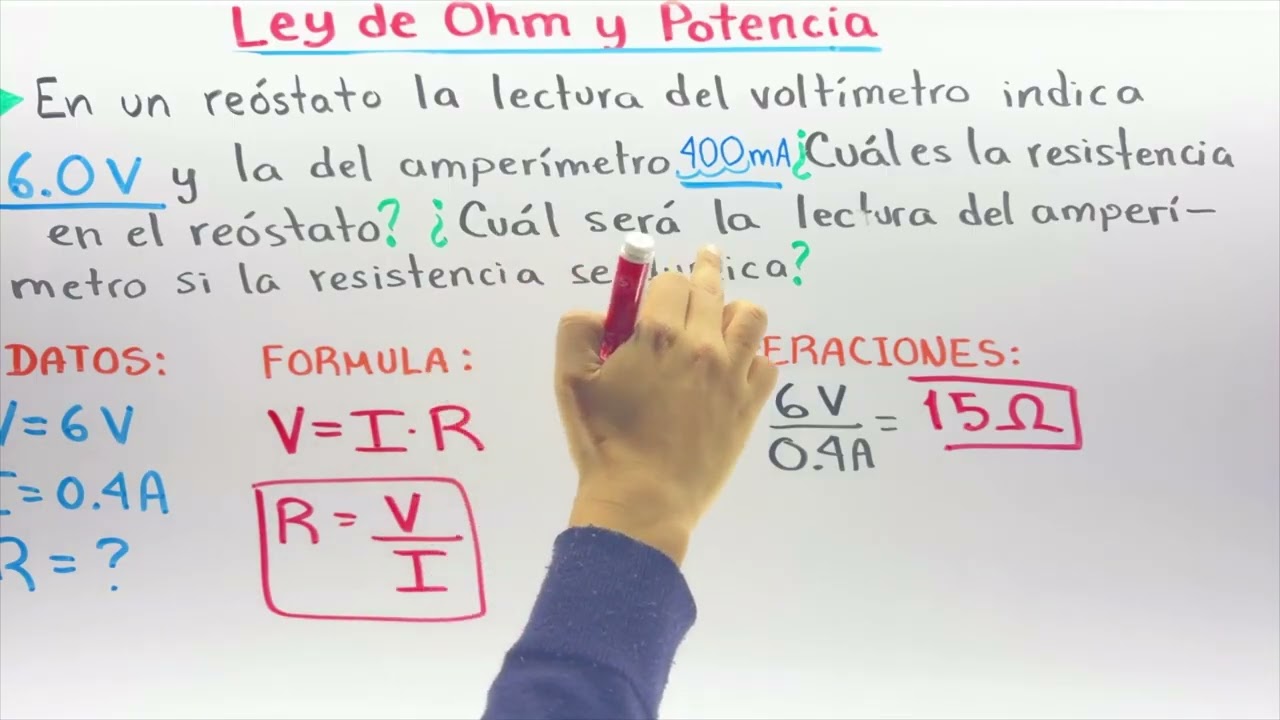 Ley de Ohm y Potencia
En un reóstato la lectura del voltímetro indica
6.0V y la del amperímetro 400mA ¿Cuál es la resistencia
en el reóstato? ¿Cuál será la lectura del amperí-
metro si la resistencia se ica?
DATOS: FORMULA: ERACIONES:
V=6V V=I·R 6V/0.4A = 15Ω
I=0.4A R=V/I
R=?